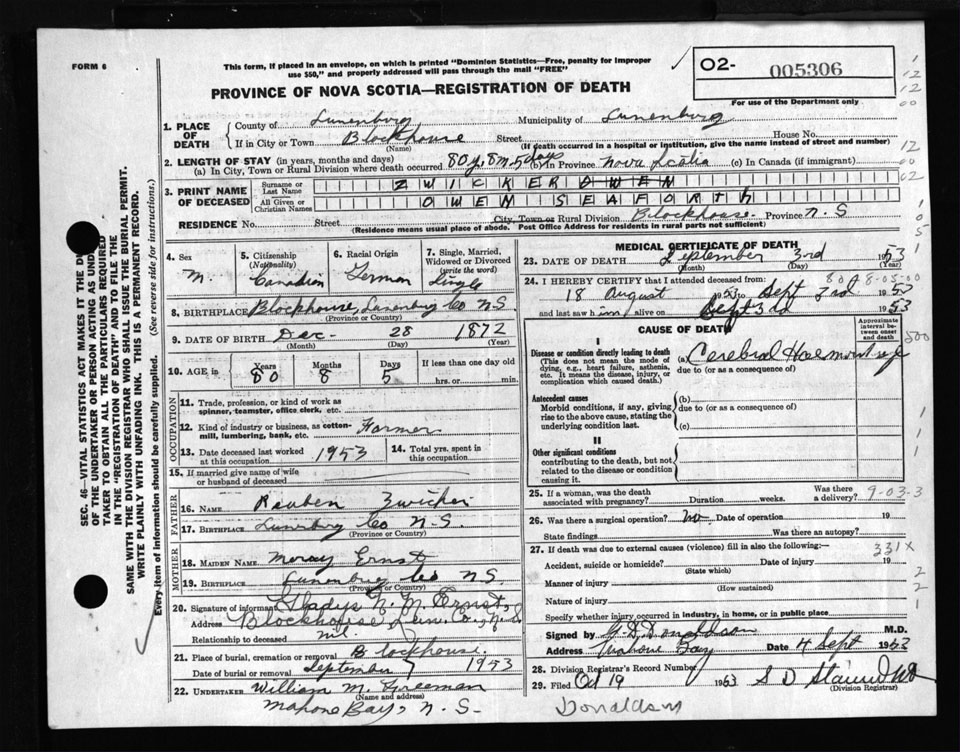 FORM 6
This form, if placed in an envelope, on which is printed "Dominion Statistics—Free, penalty for improper
use $50," and properly addressed will pass through the mail "FREE"
O2- 005306
For use of the Department only
PROVINCE OF NOVA SCOTIA—REGISTRATION OF DEATH
1. PLACE OF DEATH
County of Lunenburg Municipality of Lunenburg
If in City or Town Blockhouse Street House No.
(Name) (If death occurred in a hospital or institution, give the name instead of street and number)
2. LENGTH OF STAY (in years, months and days)
(a) In City, Town or Rural Division where death occurred 80y, 8m, 5days (b) In Province Nova Scotia (c) In Canada (if immigrant)
3. PRINT NAME OF DECEASED
Surname or Last Name ZWICKER OWEN
All Given or Christian Names OWEN SEAFORTH
RESIDENCE No. Street City, Town or Rural Division Blockhouse Province N.S
(Residence means usual place of abode. Post Office Address for residents in rural parts not sufficient)
4. Sex M.
5. Citizenship (Nationality) Canadian
6. Racial Origin German
7. Single, Married, Widowed or Divorced (write the word) Single
8. BIRTHPLACE Blockhouse, Lunenburg Co N.S
(Province or Country)
9. DATE OF BIRTH Dec 28 1872
(Month) (Day) (Year)
10. AGE in Years 80 Months 8 Days 5 If less than one day old hrs. or min.
OCCUPATION
11. Trade, profession, or kind of work as
spinner, teamster, office clerk, etc.
12. Kind of industry or business, as cotton-
mill, lumbering, bank, etc. Farmer
13. Date deceased last worked at this occupation 1953
14. Total yrs. spent in this occupation
15. If married give name of wife
or husband of deceased
FATHER
16. NAME Reuben Zwicker
17. BIRTHPLACE Lunenburg Co N.S.
(Province or Country)
MOTHER
18. MAIDEN NAME Ernst
19. BIRTHPLACE Lunenburg Co N.S
(Province or Country)
20. Signature of informant Gladys N. M. Ernst
Address Blockhouse Lun. Co.
Relationship to deceased nil
21. Place of burial, cremation or removal Blockhouse
Date of burial or removal September 1953
22. UNDERTAKER William M.
(Name and address)
Mahone Bay, N.S.
MEDICAL CERTIFICATE OF DEATH
23. DATE OF DEATH September 3rd 1953
(Month) (Day) (Year)
24. I HEREBY CERTIFY that I attended deceased from:
18 August to Sept 3rd 1953
and last saw him alive on Sept 3rd 1953
CAUSE OF DEATH
Approximate interval between onset and death
I
Disease or condition directly leading to death
(This does not mean the mode of
dying, e.g., heart failure, asthenia,
etc. It means the disease, injury, or
complication which caused death.)
(a) Cerebral Haemorrhage
due to (or as a consequence of)
Antecedent causes
Morbid conditions, if any, giving
rise to the above cause, stating the
underlying condition last.
(b)
due to (or as a consequence of)
(c)
II
Other significant conditions
contributing to the death, but not
related to the disease or condition
causing it.
25. If a woman, was the death
associated with pregnancy? Duration weeks. Was there a delivery? 9-03-3
26. Was there a surgical operation? No Date of operation 19
State findings Was there an autopsy?
27. If death was due to external causes (violence) fill in also the following:— 331X
Accident, suicide or homicide? Date of injury 19
(State which)
Manner of injury
(How sustained)
Nature of injury
Specify whether injury occurred in industry, in home, or in public place
Signed by Donaldson M.D.
Address Mahone Bay Date 4 Sept 1953
28. Division Registrar's Record Number
29. Filed Oct 19 1953 S D
(Division Registrar)
Donaldson
SEC. 46—VITAL STATISTICS ACT MAKES IT THE
OF THE UNDERTAKER OR PERSON ACTING AS
TAKER TO OBTAIN ALL THE PARTICULARS REQUIRED
IN THE "REGISTRATION OF DEATH" AND TO FILE THE
SAME WITH THE DIVISION REGISTRAR WHO SHALL ISSUE THE BURIAL PERMIT.
WRITE PLAINLY WITH UNFADING INK. THIS IS A PERMANENT RECORD.
Every item of information should be carefully supplied. (See reverse side for instructions.)